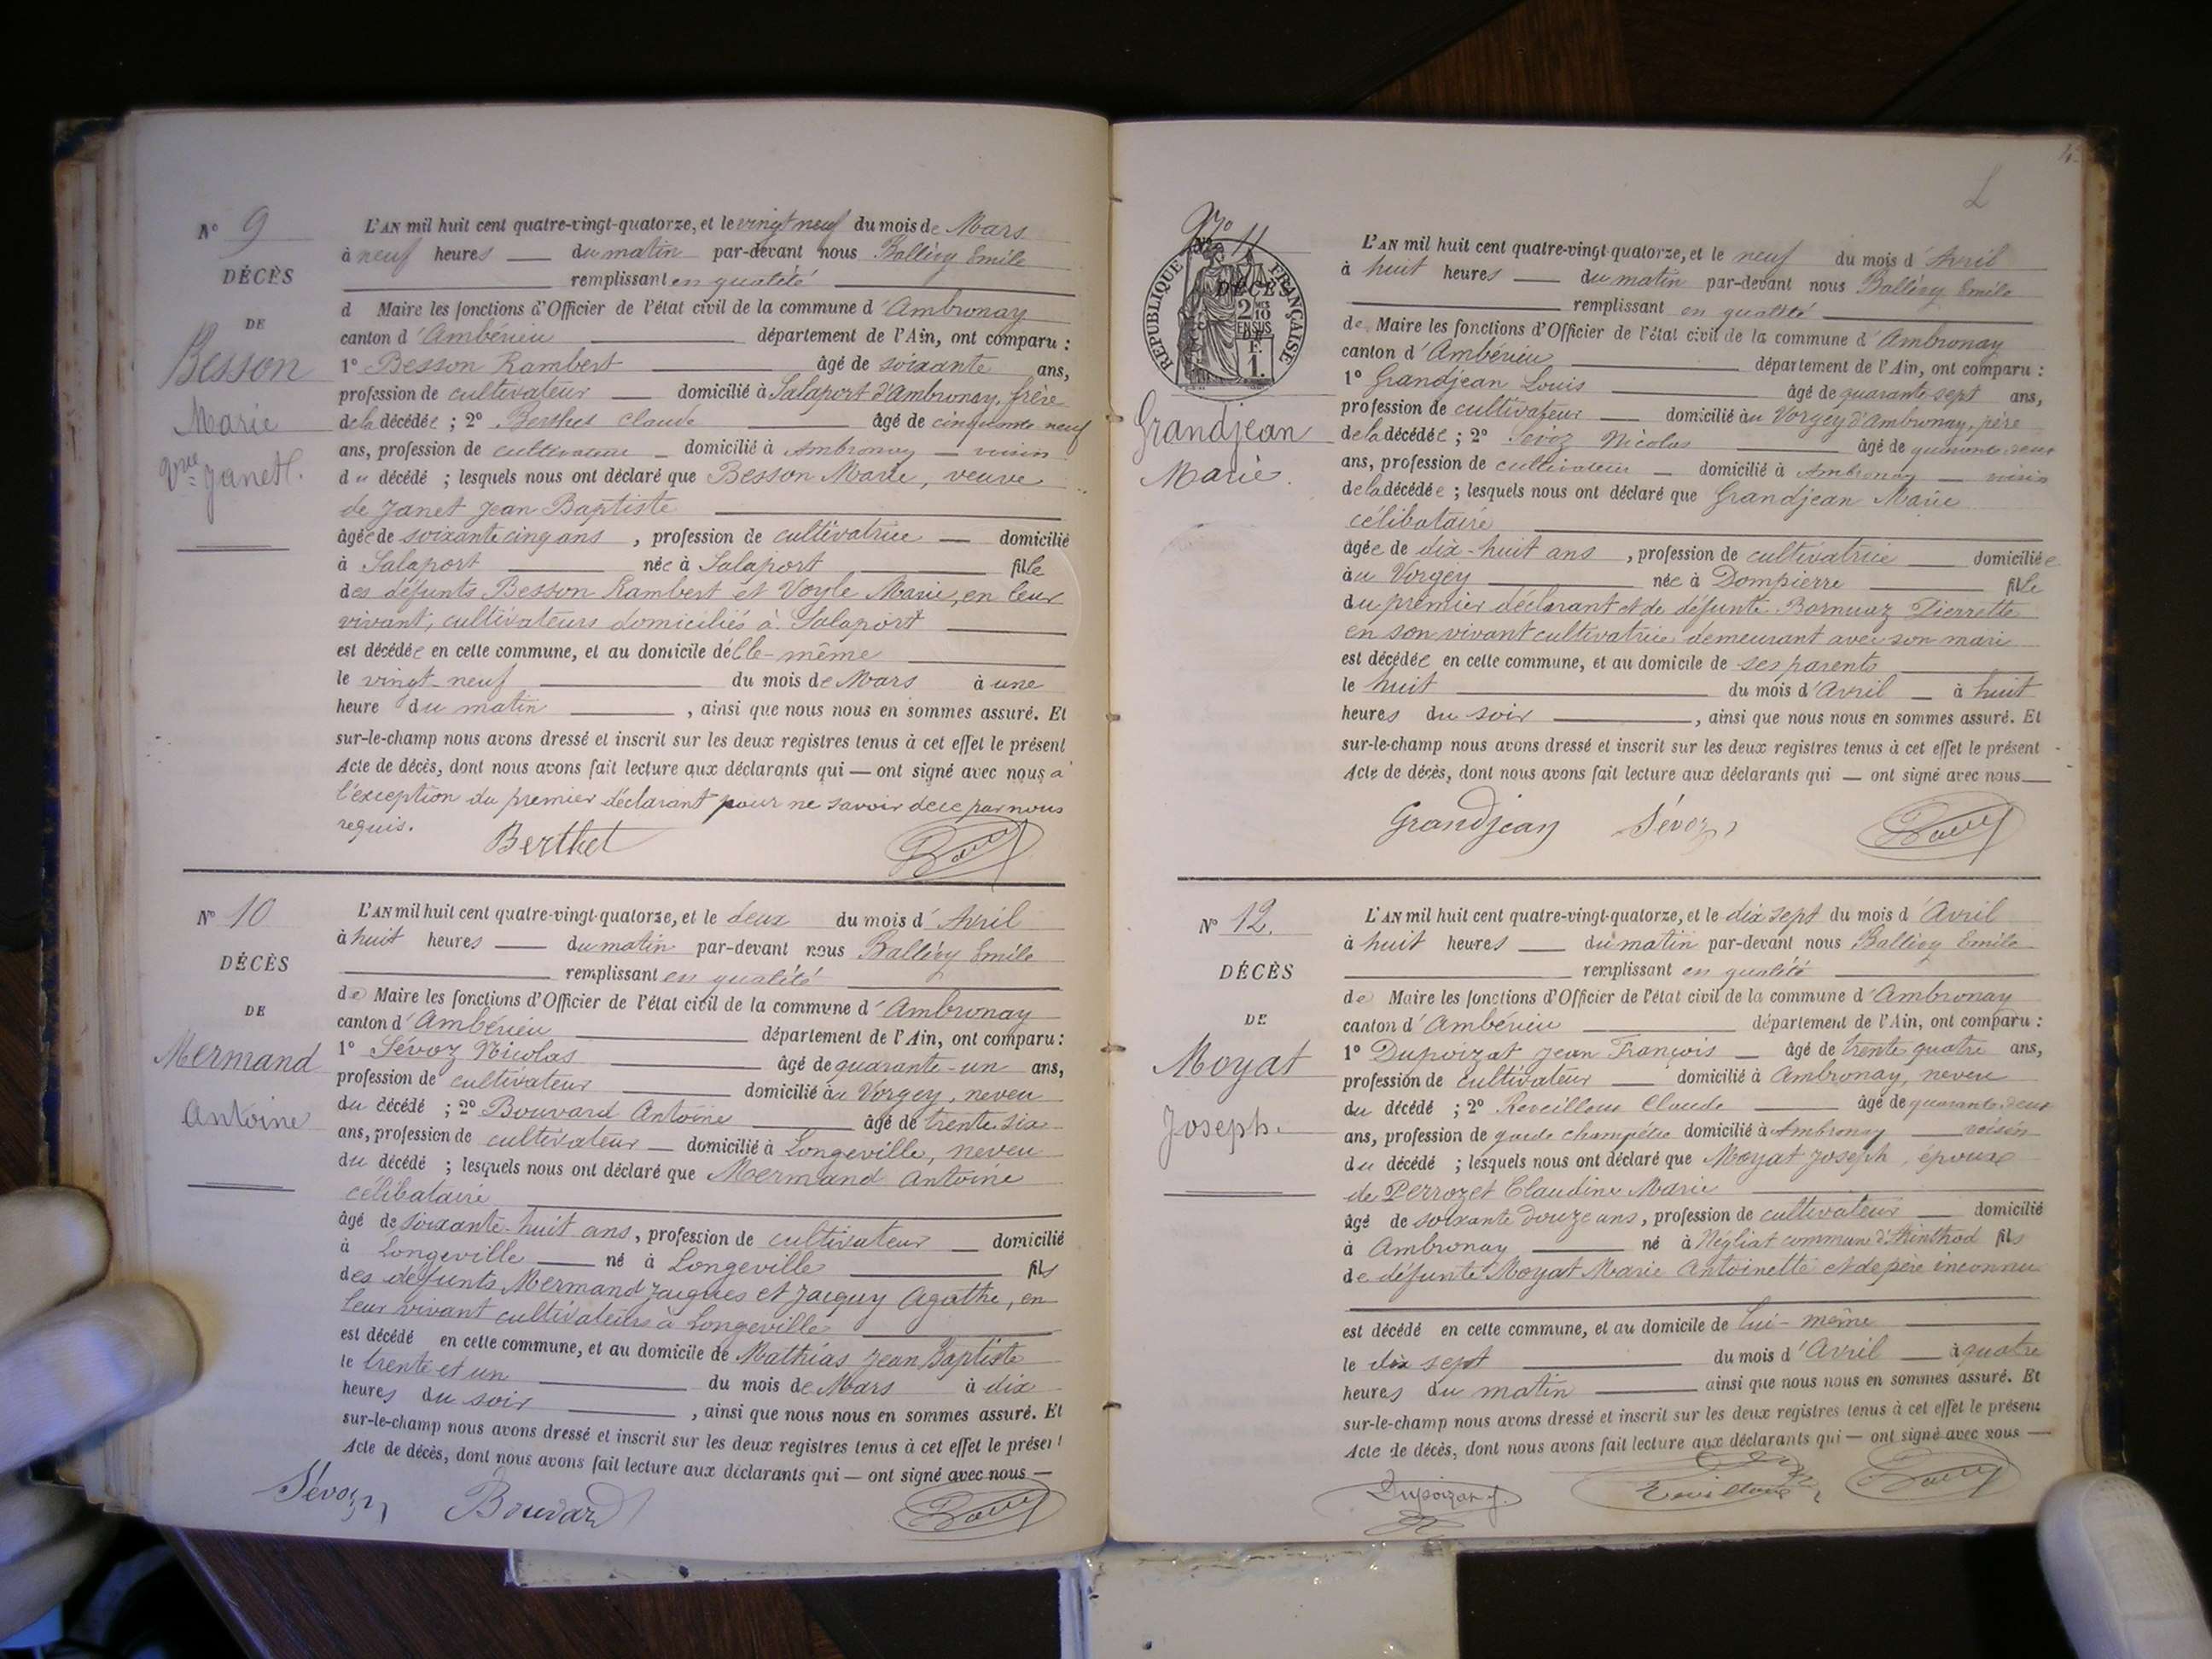 N° 9
DÉCÈS
DE
Besson
Marie
Vve Janet.
L'AN mil huit cent quatre-vingt-quatorze, et le vingt neuf du mois de Mars
à neuf heures — du matin par-devant nous Balléry Emile
remplissant en qualité
d Maire les fonctions d'Officier de l'état civil de la commune d'Ambronay
canton d'Ambérieu département de l'Ain, ont comparu :
1° Besson Rambert âgé de soixante ans,
profession de cultivateur — domicilié à Salaport d'Ambronay, frère
de la décédée ; 2° Berthet Claude âgé de cinquante neuf
ans, profession de cultivateur — domicilié à Ambronay — voisin
du décédé ; lesquels nous ont déclaré que Besson Marie, veuve
de Janet Jean Baptiste
âgée de soixante cinq ans, profession de cultivatrice — domicilié
à Salaport née à Salaport fille
des défunts Besson Rambert et Voyle Marie, en leur
vivant, cultivateurs domiciliés à Salaport
est décédée en cette commune, et au domicile d'elle-même
le vingt-neuf du mois de Mars à une
heure du matin, ainsi que nous nous en sommes assuré. Et
sur-le-champ nous avons dressé et inscrit sur les deux registres tenus à cet effet le présent
Acte de décès, dont nous avons fait lecture aux déclarants qui — ont signé avec nous à
l'exception du premier déclarant pour ne savoir de ce par nous
requis.
Berthet
N° 10
DÉCÈS
DE
Mermand
Antoine
L'AN mil huit cent quatre-vingt-quatorze, et le deux du mois d'Avril
à huit heures — du matin par-devant nous Balléry Emile
remplissant en qualité
de Maire les fonctions d'Officier de l'état civil de la commune d'Ambronay
canton d'Ambérieu département de l'Ain, ont comparu :
1° Sévoz Nicolas âgé de quarante-un ans,
profession de cultivateur domicilié au Vorgey, neveu
du décédé ; 2° Bouvard Antoine âgé de trente six
ans, profession de cultivateur — domicilié à Longeville, neveu
du décédé ; lesquels nous ont déclaré que Mermand Antoine
célibataire
âgé de soixante-huit ans, profession de cultivateur — domicilié
à Longeville — né à Longeville fils
des défunts Mermand Jacques et Jacquy Agathe, en
leur vivant cultivateurs à Longeville
est décédé en cette commune, et au domicile de Mathias Jean Baptiste
le trente et un du mois de Mars à dix
heures du soir, ainsi que nous nous en sommes assuré. Et
sur-le-champ nous avons dressé et inscrit sur les deux registres tenus à cet effet le présent
Acte de décès, dont nous avons fait lecture aux déclarants qui — ont signé avec nous —
Sévoz Bouvard
N° 11
RÉPUBLIQUE FRANÇAISE
DÉCÈS
2/10 EN SUS
DE
F. 1.
Grandjean
Marie.
L'AN mil huit cent quatre-vingt-quatorze, et le neuf du mois d'Avril
à huit heures — du matin par-devant nous Balléry Emile
remplissant en qualité
de Maire les fonctions d'Officier de l'état civil de la commune d'Ambronay
canton d'Ambérieu département de l'Ain, ont comparu :
1° Grandjean Louis âgé de quarante sept ans,
profession de cultivateur — domicilié au Vorgey d'Ambronay, père
de la décédée ; 2° Sévoz Nicolas âgé de quarante deux
ans, profession de cultivateur — domicilié à Ambronay — voisin
de la décédée ; lesquels nous ont déclaré que Grandjean Marie
célibataire
âgée de dix-huit ans, profession de cultivatrice — domiciliée
au Vorgey née à Dompierre fille
du premier déclarant et de défunte Bornuaz Pierrette
en son vivant cultivatrice demeurant avec son mari
est décédée en cette commune, et au domicile de ses parents
le huit du mois d'Avril — à huit
heures du soir, ainsi que nous nous en sommes assuré. Et
sur-le-champ nous avons dressé et inscrit sur les deux registres tenus à cet effet le présent
Acte de décès, dont nous avons fait lecture aux déclarants qui — ont signé avec nous —
Grandjean Sévoz
N° 12.
DÉCÈS
DE
Moyat
Joseph.
L'AN mil huit cent quatre-vingt-quatorze, et le dix sept du mois d'Avril
à huit heures — du matin par-devant nous Balléry Emile
remplissant en qualité
de Maire les fonctions d'Officier de l'état civil de la commune d'Ambronay
canton d'Ambérieu département de l'Ain, ont comparu :
1° Dupoizat Jean François — âgé de trente quatre ans,
profession de cultivateur — domicilié à Ambronay, neveu
du décédé ; 2° Reveilloux Claude âgé de quarante deux
ans, profession de garde champêtre domicilié à Ambronay — voisin
du décédé ; lesquels nous ont déclaré que Moyat Joseph, époux
de Perrozet Claudine Marie
âgé de soixante douze ans, profession de cultivateur — domicilié
à Ambronay né à Négliat commune d'Arinthod fils
de défunte Moyat Marie Antoinette et de père inconnu
est décédé en cette commune, et au domicile de lui-même
le dix sept du mois d'Avril — à quatre
heures du matin ainsi que nous nous en sommes assuré. Et
sur-le-champ nous avons dressé et inscrit sur les deux registres tenus à cet effet le présent
Acte de décès, dont nous avons fait lecture aux déclarants qui — ont signé avec nous —
Dupoizat J.